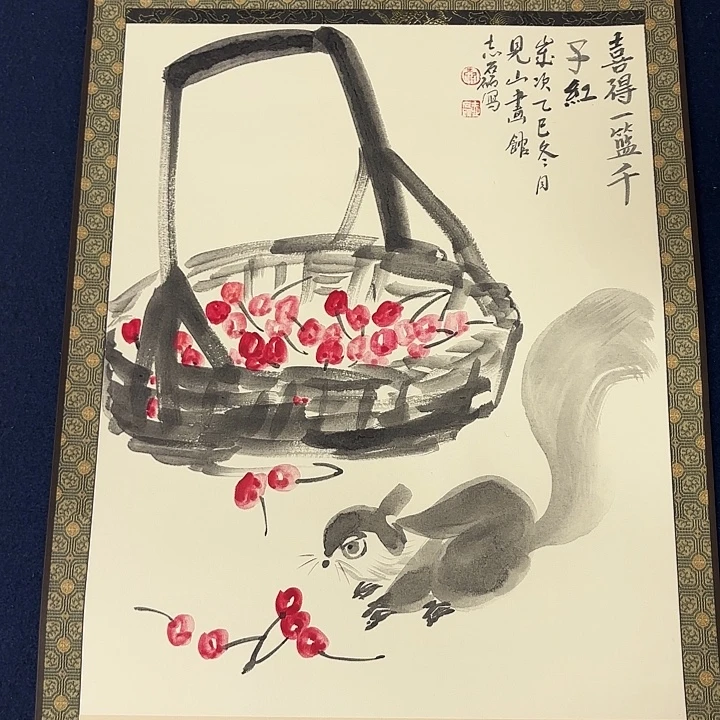 喜得一篮千
子红
岁次乙巳冬月
见山畫館
志磊写